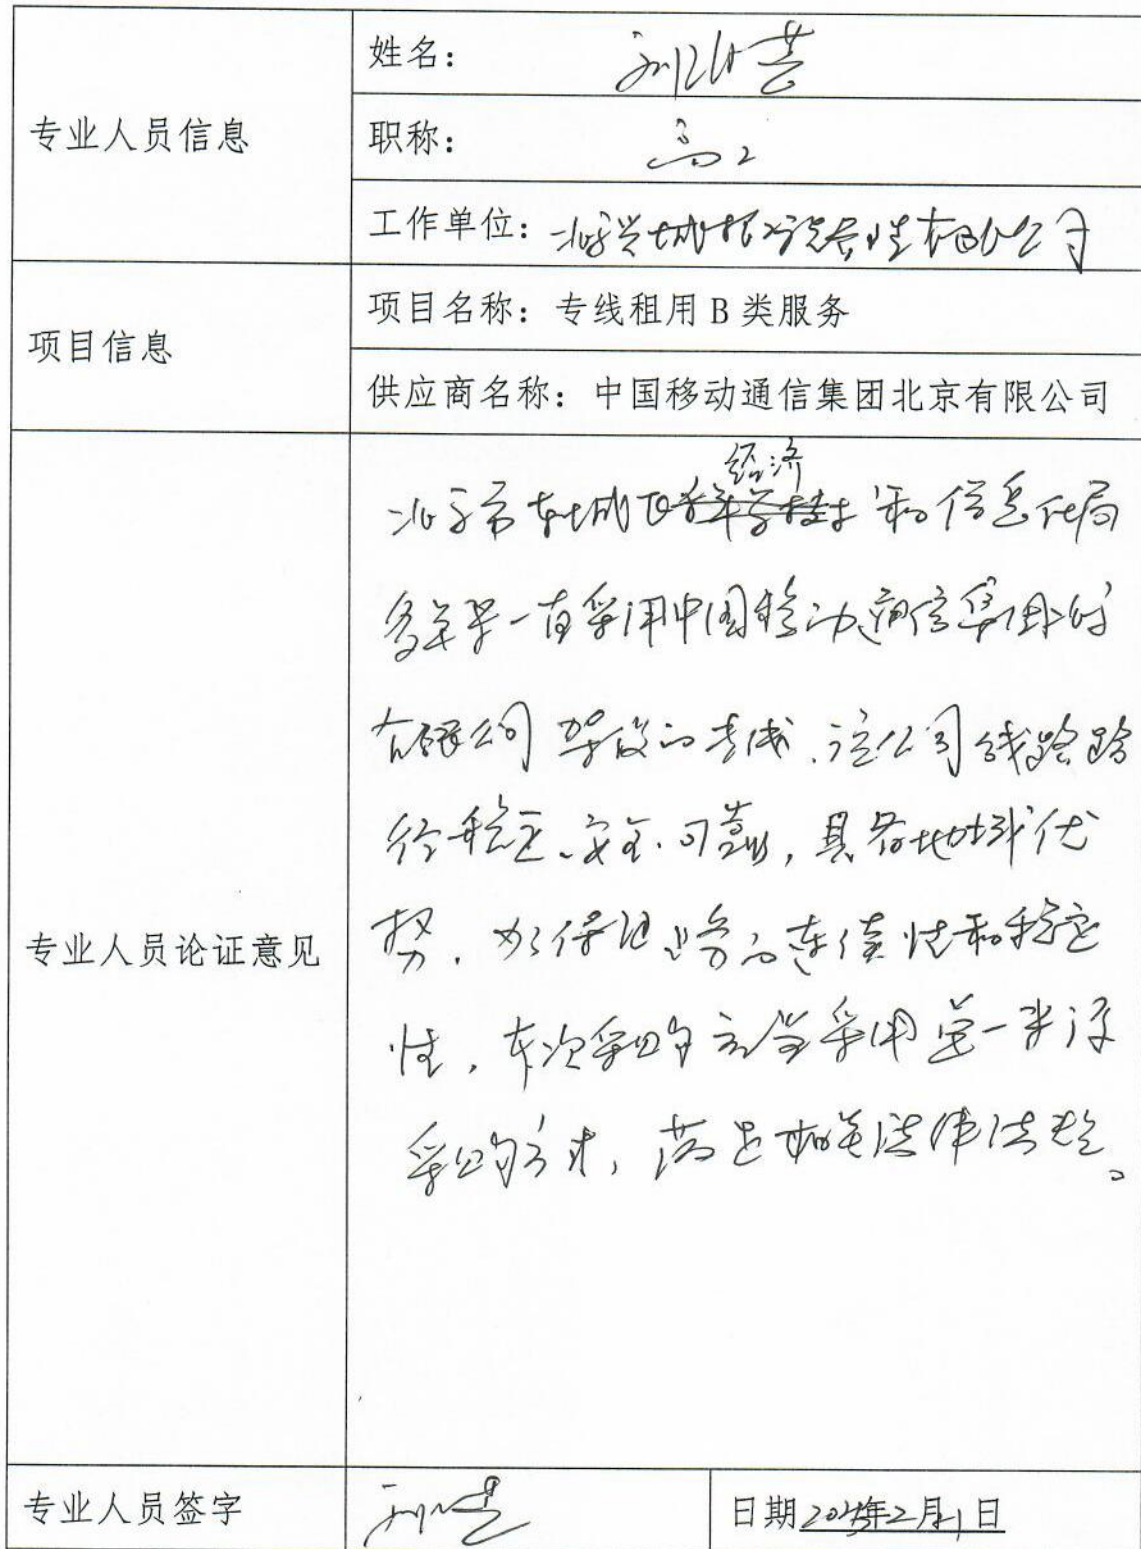 专业人员信息
姓名：刘
职称：高工
工作单位：北京 城 有限公司
项目信息
项目名称：专线租用 B 类服务
供应商名称：中国移动通信集团北京有限公司
专业人员论证意见
经济
北京市东城区科学技术和信息化局
多年来一直采用中国移动通信集团
有限公司架设的专线，该公司线路路
径稳定、安全、可靠，具有地域优
势，为保证业务的连续性和稳定
性，本次采购应当采用单一来源
采购方式，满足相关法律法规。
专业人员签字
刘
日期 2025年2月1日